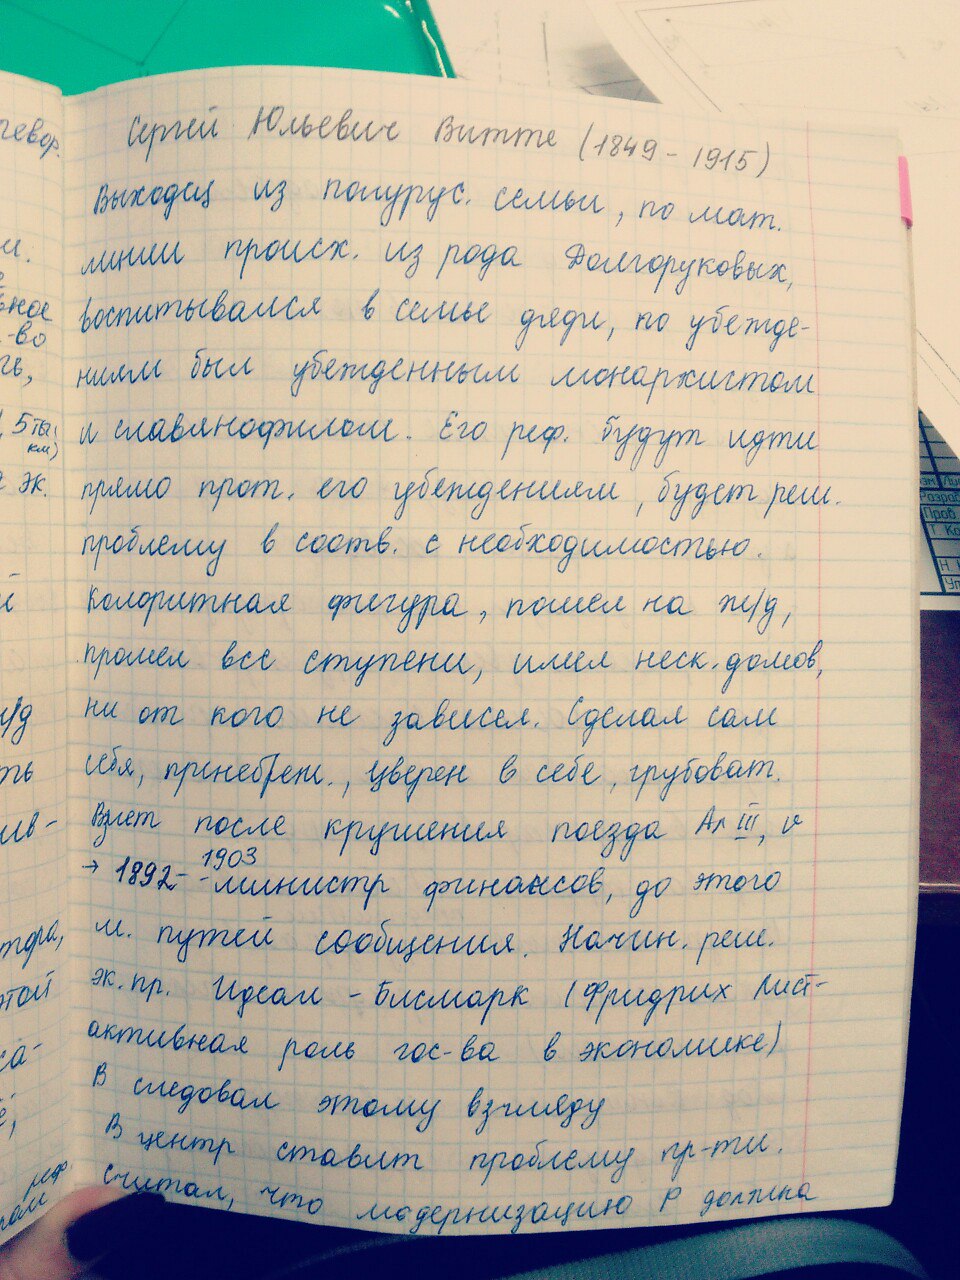 Сергей Юльевич Витте (1849 - 1915)
Выходец из полурус. семьи, по мат.
линии происх. из рода Долгоруковых,
воспитывался в семье дяди, по убежде-
ниям был убежденным монархистом
и славянофилом. Его реф. будут идти
прямо прот. его убеждениям, будет реш.
проблему в соотв. с необходимостью.
Колоритная фигура, пошел на ж/д,
прошел все ступени, имел неск. домов,
ни от кого не зависел. Сделал сам
себя, пренебреж., уверен в себе, грубоват.
Взлет после крушения поезда Ал III,
→ 1892 - 1903 - министр финансов, до этого
м. путей сообщения. Начин. реш.
эк. пр. Идеал - Бисмарк (Фридрих Лист-
активная роль гос-ва в экономике)
В следовал этому взгляду
В центр ставит проблему пр-ти.
Считал, что модернизацию Р должна
говор.
ьное
-во
5 ты
км)
эк.
ж/д
ть
ив-
тора,
этой
са-
реф.
Разраб
Пров
Т. Ко
Н. К
Ут